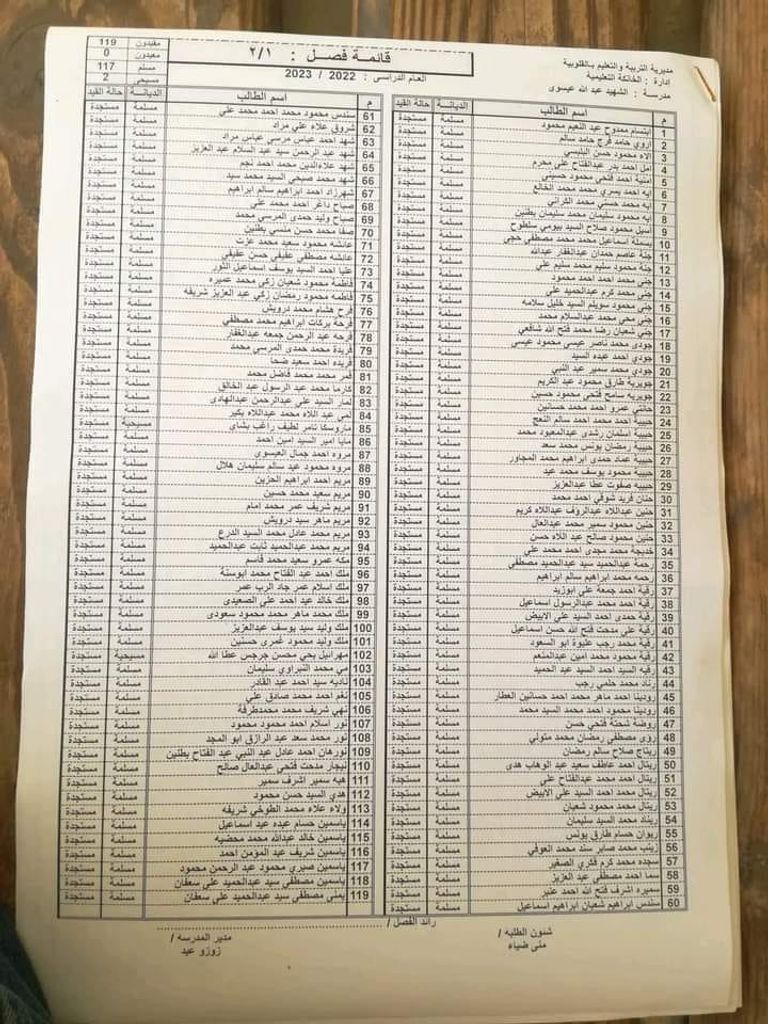 مديرية التربية والتعليم بالقلوبية
ادارة : الخانكة التعليمية
مدرسة : الشهيد عبد الله عيسوى
قائمة فصل : ٢/١
العام الدراسى : 2022 / 2023
مقيدون 119
معيدون 0
مسلم 117
مسيحى 2
م اسم الطالب الديانة حالة القيد
1 ابتسام ممدوح عبد النعيم محمود مسلمة مستجدة
2 اروي حامد فرج حامد سالم مسلمة مستجدة
3 الاء محمود حسن البلبيسي مسلمة مستجدة
4 امل احمد بدر عبدالفتاح على محرم مسلمة مستجدة
5 احمد فتحى محمود حسينى مسلمة مستجدة
6 ايه احمد يسري محمد محمد الخالع مسلمة مستجدة
7 ايه محمد حسني محمد الكراني مسلمة مستجدة
8 ايه محمود سليمان محمد سليمان بطنين مسلمة مستجدة
9 أسيل محمود صلاح السيد بيومي سلطوح مسلمة مستجدة
10 بسملة اسماعيل محمد محمد مصطفي حجي مسلمة مستجدة
11 جنة عاصم حمدان عبدالغفار عبدالله مسلمة مستجدة
12 جنة محمود سليم محمد سليم علي مسلمة مستجدة
13 جنى محمد احمد احمد محمود مسلمة مستجدة
14 جني محمد كرم عبدالحميد على مسلمة مستجدة
15 جنى محمود سويلم السيد خليل سلامه مسلمة مستجدة
16 جنى محي محمد عبدالسلام محمد مسلمة مستجدة
17 جني شعبان رضا محمد فتح الله شافعي مسلمة مستجدة
18 جودى محمد ناصر عيسى محمود عيسى مسلمة مستجدة
19 جودي احمد عبده السيد مسلمة مستجدة
20 جودي محمد سمير عبد النبي مسلمة مستجدة
21 جويرية طارق محمود عبد الكريم مسلمة مستجدة
22 جويريه سامح فتحى محمود حسين مسلمة مستجدة
23 عمرو احمد محمد حسانين مسلمة مستجدة
24 حبيبة احمد محمد احمد سالم النعج مسلمة مستجدة
25 حبيبة اسلمان رشدى عبدالمعبود محمد مسلمة مستجدة
26 حبيبة رمضان يونس محمد سعد مسلمة مستجدة
27 حبيبة عماد حمدى ابراهيم محمد المجاور مسلمة مستجدة
28 حبيبة محمود يوسف محمد عيد مسلمة مستجدة
29 حبيبه صفوت عطا عبدالعزيز مسلمة مستجدة
30 حنان فريد شوقي احمد محمد مسلمة مستجدة
31 حنين عبداللاه عبدالرؤف عبداللاه كريم مسلمة مستجدة
32 حنين محمود سمير محمد عبدالعال مسلمة مستجدة
33 حنين محمود صالح عبد اللاه حسن مسلمة مستجدة
34 خديجة محمد مجدى احمد محمد على مسلمة مستجدة
35 رحمة عبدالحميد سيد عبدالحميد مصطفي مسلمة مستجدة
36 رحمه محمد ابراهيم سالم ابراهيم مسلمة مستجدة
37 رقية احمد جمعة علي ابوزيد مسلمة مستجدة
38 رقية احمد محمد عبدالرسول اسماعيل مسلمة مستجدة
39 رقية حمدى احمد السيد علي الابيض مسلمة مستجدة
40 رقية على مدحت فتح الله حسن اسماعيل مسلمة مستجدة
41 رقية محمد رجب عليوة ابو السعود مسلمة مستجدة
42 رقية محمود محمد امين عبدالمنعم مسلمة مستجدة
43 رقيه السيد احمد السيد عبد الحميد مسلمة مستجدة
44 رناد محمد حلمي رجب مسلمة مستجدة
45 رودينا احمد ماهر محمد احمد حسانين العطار مسلمة مستجدة
46 رودينا محمود احمد محمد السيد محمد مسلمة مستجدة
47 روضة شحتة فتحي حسن مسلمة مستجدة
48 رؤى مصطفي رمضان محمد متولي مسلمة مستجدة
49 ريتاج صلاح سالم رمضان مسلمة مستجدة
50 ريتال احمد عاطف سعيد عبد الوهاب هدى مسلمة مستجدة
51 ريتال احمد محمد عبدالفتاح على مسلمة مستجدة
52 ريتال محمد احمد السيد علي الابيض مسلمة مستجدة
53 ريتال محمد محمود شعبان مسلمة مستجدة
54 ريناد محمد السيد سليمان مسلمة مستجدة
55 ريوان حسام طارق يونس مسلمة مستجدة
56 زينب محمد صابر سند محمد العوفي مسلمة مستجدة
57 سجده محمد كرم فكري الصغير مسلمة مستجدة
58 سما احمد مصطفي عبد العزيز مسلمة مستجدة
59 سميره اشرف فتح الله احمد عنبر مسلمة مستجدة
60 سندس ابراهيم شعبان ابراهيم اسماعيل مسلمة مستجدة
م اسم الطالب الديانة حالة القيد
61 سندس محمود محمد احمد محمد علي مسلمة مستجدة
62 شروق علاء علي مراد مسلمة مستجدة
63 شهد احمد عباس مرسى عباس مراد مسلمة مستجدة
64 شهد عبد الرحمن سيد عبد السلام عبد العزيز مسلمة مستجدة
65 شهد علاءالدين محمد احمد نجم مسلمة مستجدة
66 شهد محمد صبحي السيد محمد سيد مسلمة مستجدة
67 شهرزاد احمد ابراهيم سالم ابراهيم مسلمة مستجدة
68 صباح داغر احمد محمد على مسلمة مستجدة
69 صباح وليد حمدى المرسى محمد مسلمة مستجدة
70 صفا محمد حسن منسي بطنين مسلمة مستجدة
71 عائشه محمود سعيد محمد عزت مسلمة مستجدة
72 عائشه مصطفى عفيفى حسن عفيفي مسلمة مستجدة
73 عليا احمد السيد يوسف اسماعيل النور مسلمة مستجدة
74 فاطمة محمود شعبان زكى محمد عميره مسلمة مستجدة
75 فاطمه محمود رمضان زكي عبد العزيز شريفه مسلمة مستجدة
76 فرح هشام محمد درويش مسلمة مستجدة
77 فرحة بركات ابراهيم محمد مصطفي مسلمة مستجدة
78 فرحه عبد الرحمن جمعه عبدالغفار مسلمة مستجدة
79 فريدة محمد حمدى المرسى محمد مسلمة مستجدة
80 فريده احمد سعيد ضحا مسلمة مستجدة
81 قمر محمد محمد فاضل محمد مسلمة مستجدة
82 كارما محمد عبد الرسول عبد الخالق مسلمة مستجدة
83 لمار السيد علي عبدالرحمن عبدالهادى مسلمة مستجدة
84 لمى عبد اللاه محمد عبداللاه بكير مسلمة مستجدة
85 ماروسكا تامر لطيف راغب بشاى مسيحية مستجدة
86 مايا امير السيد امين احمد مسلمة مستجدة
87 مروه احمد جمال العيسوي مسلمة مستجدة
88 مروه محمود عبد سالم سليمان هلال مسلمة مستجدة
89 مريم احمد ابراهيم الحزين مسلمة مستجدة
90 مريم سعيد محمد حسين مسلمة مستجدة
91 مريم شريف عمر محمد امام مسلمة مستجدة
92 مريم ماهر سيد درويش مسلمة مستجدة
93 مريم محمد عادل محمد السيد الدرع مسلمة مستجدة
94 مريم محمد عبدالحميد ثابت عبدالحميد مسلمة مستجدة
95 مكه عمرو سعيد محمد قاسم مسلمة مستجدة
96 ملك احمد عبد الفتاح محمد ابوسنة مسلمة مستجدة
97 ملك اسلام عمر جاد الرب عمر مسلمة مستجدة
98 ملك خالد عيد احمد علي الصعيدى مسلمة مستجدة
99 ملك محمد ماهر محمد محمود سعودى مسلمة مستجدة
100 ملك وليد سيد يوسف عبدالعزيز مسلمة مستجدة
101 ملك وليد محمود غمرى حسنين مسلمة مستجدة
102 مهرائيل يحي محسن جرجس عطا الله مسيحية مستجدة
103 مي محمد الشبراوي سليمان مسلمة مستجدة
104 ناديه سيد احمد عبد القادر مسلمة مستجدة
105 نغم احمد محمد صادق علي مسلمة مستجدة
106 نهي شريف محمد محمدطرفة مسلمة مستجدة
107 نور اسلام احمد محمود محمود مسلمة مستجدة
108 نور محمد سعد عبد الرازق ابو المجد مسلمة مستجدة
109 نورهان احمد عادل عبد النبي عبد الفتاح بطنين مسلمة مستجدة
110 نيجار مدحت فتحى عبدالعال صالح مسلمة مستجدة
111 هبه سمير اشرف سمير مسلمة مستجدة
112 هدي السيد حسن محمود مسلمة مستجدة
113 ولاء علاء محمد الطوخي شريفه مسلمة مستجدة
114 ياسمين حسام عبده عيد اسماعيل مسلمة مستجدة
115 ياسمين خالد عبدالله محمد محضيه مسلمة مستجدة
116 ياسمين شريف عبد المؤمن احمد مسلمة مستجدة
117 ياسمين صبري محمود عبد الرحمن محمود مسلمة مستجدة
118 ياسمين مصطفي سيد عبدالحميد علي سعفان مسلمة مستجدة
119 يمنى مصطفي سيد عبدالحميد علي سعفان مسلمة مستجدة
رائد الفصل /
شئون الطلبه /
منى ضياء
مدير المدرسه /
زوزو عيد